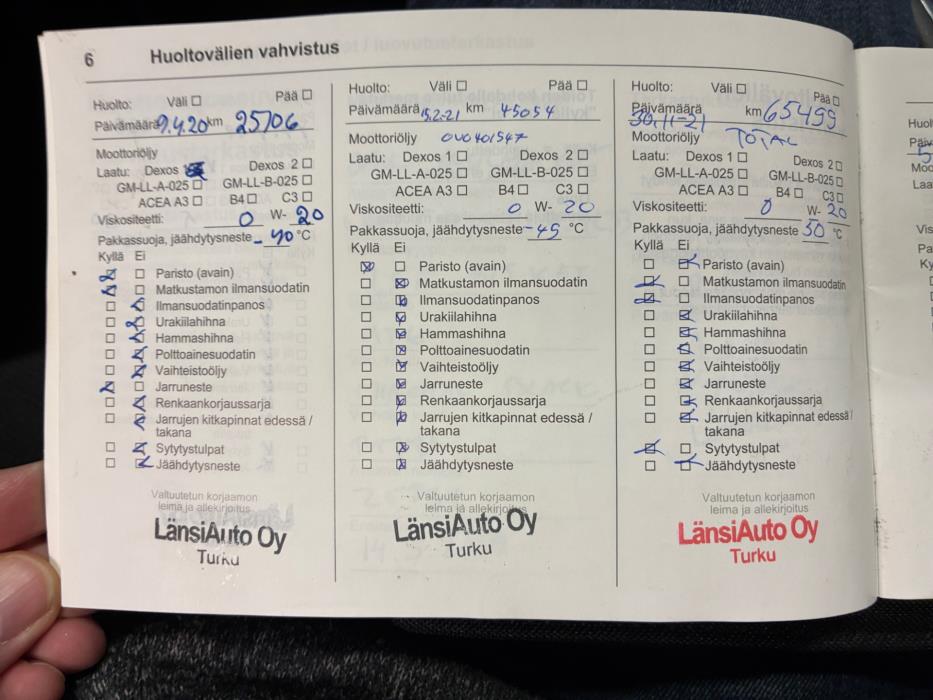 6 Huoltovälien vahvistus
Huolto: Väli ☐ Pää ☐
Päivämäärä 9.4.20 km 25706
Moottoriöljy
Laatu: Dexos 1 ☒ Dexos 2 ☐
GM-LL-A-025 ☐ GM-LL-B-025 ☐
ACEA A3 ☐ B4 ☐ C3 ☐
Viskositeetti: 0 W- 20
Pakkassuoja, jäähdytysneste -40 °C
Kyllä Ei
☒ ☐ Paristo (avain)
☒ ☐ Matkustamon ilmansuodatin
☐ ☒ Ilmansuodatinpanos
☐ ☒ Urakiilahihna
☐ ☒ Hammashihna
☐ ☒ Polttoainesuodatin
☐ ☒ Vaihteistoöljy
☒ ☐ Jarruneste
☐ ☒ Renkaankorjaussarja
☐ ☒ Jarrujen kitkapinnat edessä /
takana
☐ ☒ Sytytystulpat
☐ ☒ Jäähdytysneste
Valtuutetun korjaamon
leima ja allekirjoitus
LänsiAuto Oy
Turku
Huolto: Väli ☐ Pää ☐
Päivämäärä 15.2-21 km 45054
Moottoriöljy OVO401547
Laatu: Dexos 1 ☐ Dexos 2 ☐
GM-LL-A-025 ☐ GM-LL-B-025 ☐
ACEA A3 ☐ B4 ☐ C3 ☐
Viskositeetti: 0 W- 20
Pakkassuoja, jäähdytysneste -45 °C
Kyllä Ei
☒ ☐ Paristo (avain)
☐ ☒ Matkustamon ilmansuodatin
☐ ☒ Ilmansuodatinpanos
☐ ☒ Urakiilahihna
☐ ☒ Hammashihna
☐ ☒ Polttoainesuodatin
☐ ☒ Vaihteistoöljy
☐ ☒ Jarruneste
☐ ☒ Renkaankorjaussarja
☐ ☒ Jarrujen kitkapinnat edessä /
takana
☐ ☒ Sytytystulpat
☐ ☒ Jäähdytysneste
Valtuutetun korjaamon
leima ja allekirjoitus
LänsiAuto Oy
Turku
Huolto: Väli ☐ Pää ☐
Päivämäärä 30.11-21 km 65499
Moottoriöljy TOTAL
Laatu: Dexos 1 ☐ Dexos 2 ☐
GM-LL-A-025 ☐ GM-LL-B-025 ☐
ACEA A3 ☐ B4 ☐ C3 ☐
Viskositeetti: 0 W- 20
Pakkassuoja, jäähdytysneste 50 °C
Kyllä Ei
☐ ☒ Paristo (avain)
☒ ☐ Matkustamon ilmansuodatin
☒ ☐ Ilmansuodatinpanos
☐ ☒ Urakiilahihna
☐ ☒ Hammashihna
☐ ☒ Polttoainesuodatin
☐ ☒ Vaihteistoöljy
☐ ☒ Jarruneste
☐ ☒ Renkaankorjaussarja
☐ ☒ Jarrujen kitkapinnat edessä /
takana
☒ ☐ Sytytystulpat
☐ ☒ Jäähdytysneste
Valtuutetun korjaamon
leima ja allekirjoitus
LänsiAuto Oy
Turku